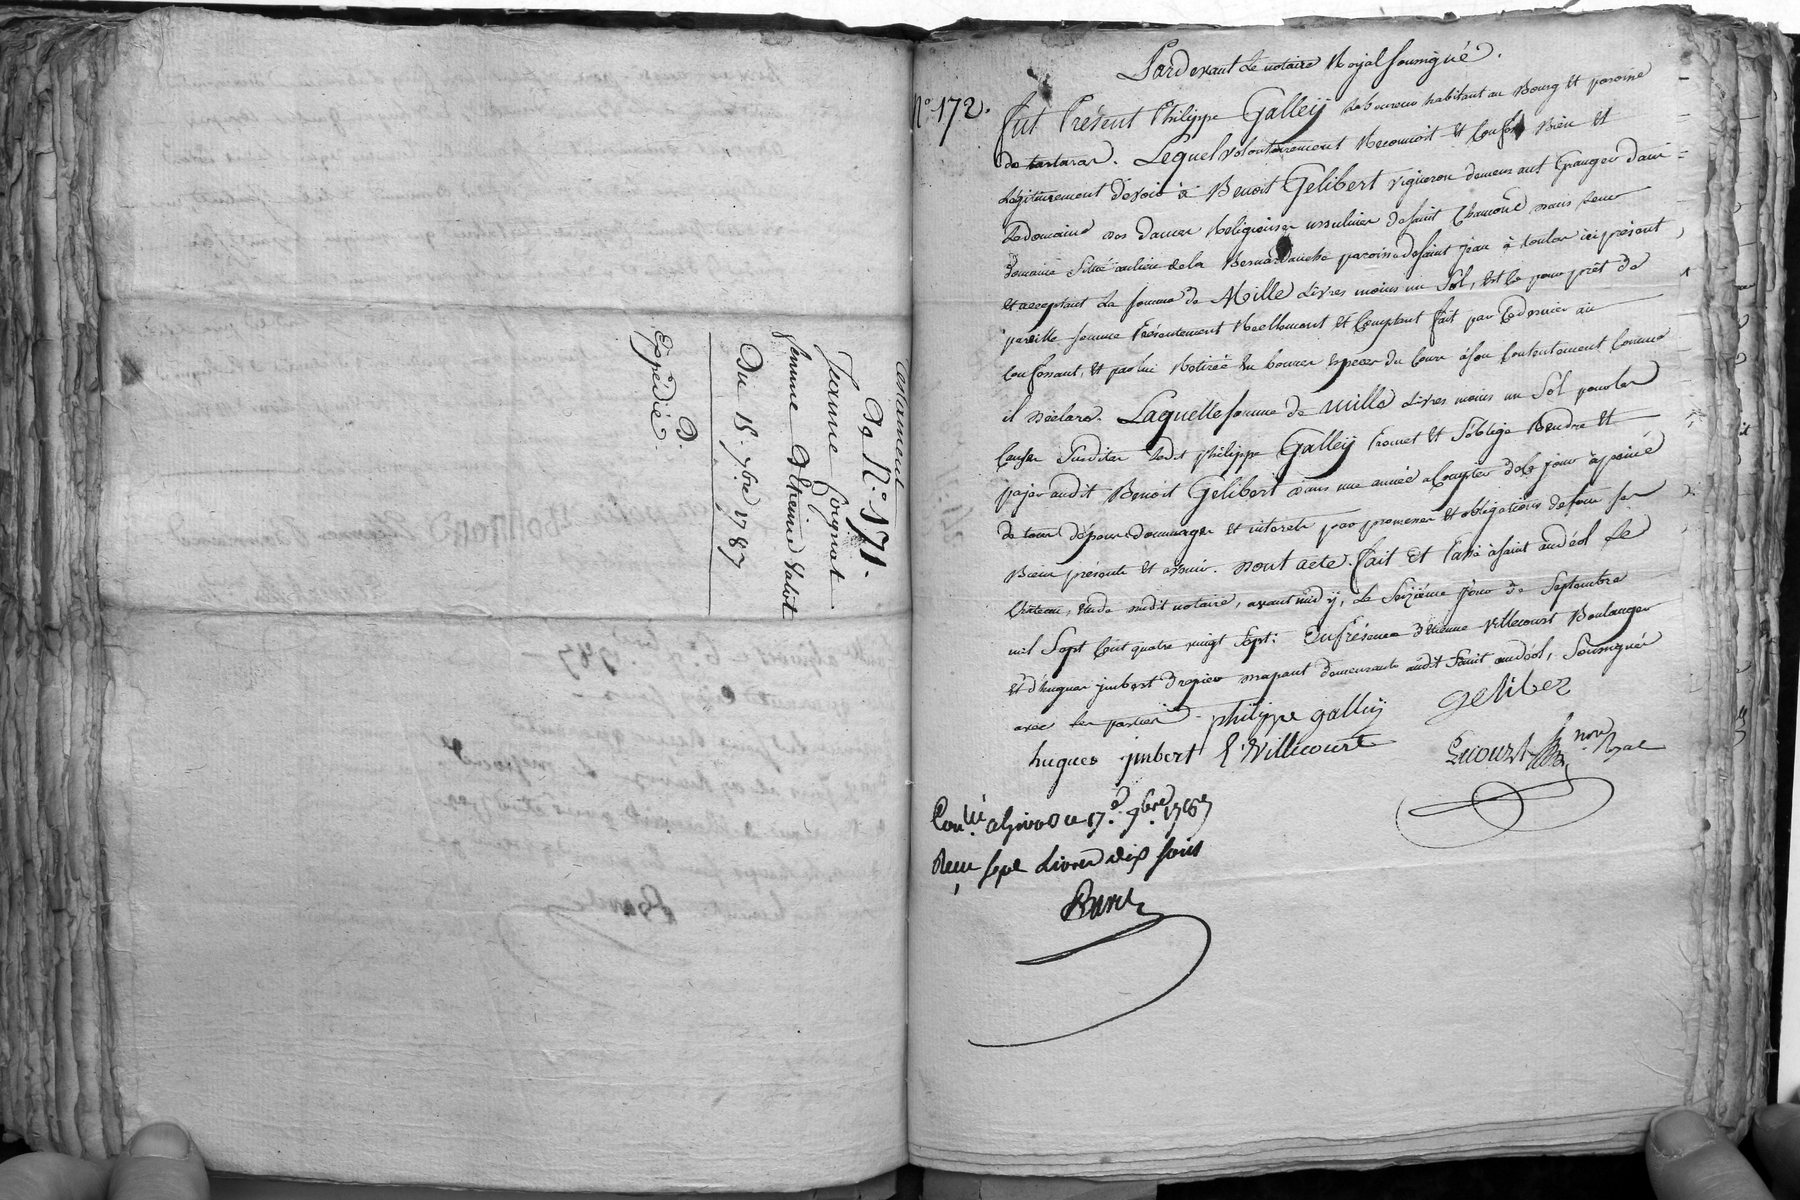 Testament
De N.° 171.
Jeanne Poignat
femme D'Etienne Valot
Du 15. 7bre 1787
D.
Expédié.
N.° 172.
Pardevant Le notaire Royal soussigné.
Fut Présent Philippe Galley Laboureur habitant au Bourg et paroisse
de tartaras. Lequel volontairement Reconnoit et Confesse Bien et
Légitimement devoir à Benoit Gelibert vigneron demeurant Granger dans
Le domaine des dames Religieuses ursulines de saint Chamond dans leur
domaine situé au lieu de la paroisse de saint jean à toulas ici présent
et acceptant La somme de Mille Livres moins un Sol, Et Ce pour prêt de
pareille somme Présentement Réellement et Comptant fait par Ce dernier au
Confessant, et par lui Retirée en bonnes espèces du Cours à son Contentement Comme
il déclare. Laquelle somme de mille Livres moins un Sol pour les
Causes Susdites ledit Philippe Galley Promet et S'oblige Rendre et
payer audit Benoit Gelibert dans une année a Compter de Ce jour à peine
de tous dépens dommages et interets par promesses et obligations de tous ses
Biens présents et avenir. dont acte. Fait Et Passé à saint andéol Le
Château, Etude dudit notaire, avant midy, Le Seizième jour de Septembre
mil Sept Cent quatre vingt Sept: En Présence d'Etienne Villecourt Boulanger
et d'hugues jmbert Drapier demeurants audit Saint andéol, Soussignés
avec les parties. philippe galley gelibert
hugues jmbert E: Villecourt Lecourt nore Royal
Con.lé a Givors Le 17.e 7bre. 1787
Reçu sept Livres dix sous